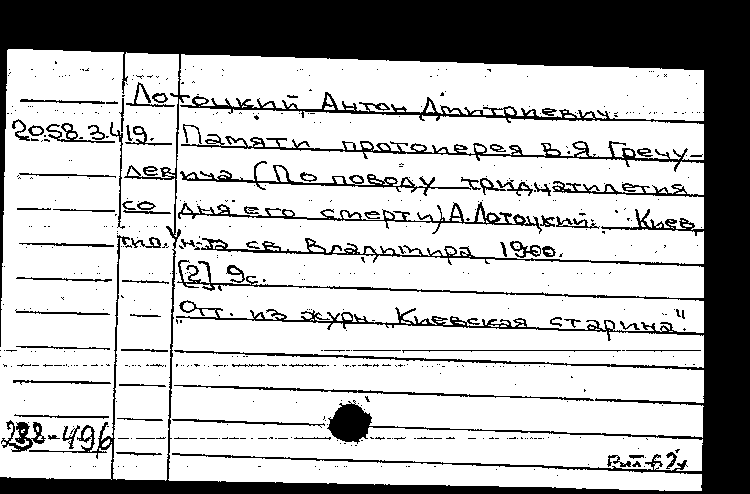 Лотоцкий, Антон Дмитриевич.
2058.3.419. Памяти протоиерея В.Я. Гречу-
левича. (По поводу тридцатилетия
со дня его смерти) А. Лотоцкий. Киев,
тип. Ун-та св. Владимира, 1900.
[2], 9с.
Отт. из журн. "Киевская старина".
288-496